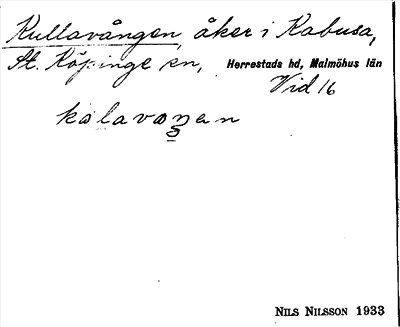 Kullavången, åker i Kabusa,
St. Köpinge sn, Herrestads hd, Malmöhus län
Vid 16
NILS NILSSON 1933